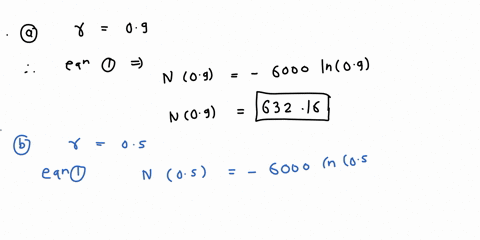 (a) r = 0.9
∴ eqn ① ⇒ N (0.9) = - 6000 ln(0.9)
N (0.9) = 632.16
(b) r = 0.5
eqn ① N (0.5) = - 6000 ln (0.5